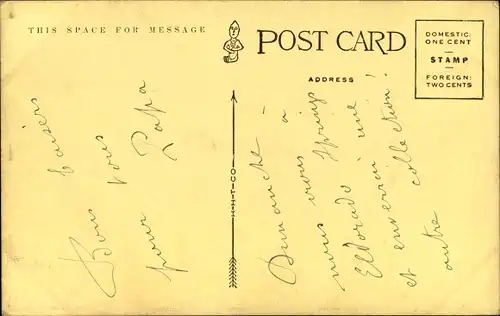 THIS SPACE FOR MESSAGE
POST CARD
ADDRESS
DOMESTIC:
ONE CENT
STAMP
FOREIGN:
TWO CENTS
H-H-T-CO.
Bons baisers
vous
pour Papa
Dimanche à
nous irons Springs
Eldorado une
et enverrai
autre collection!